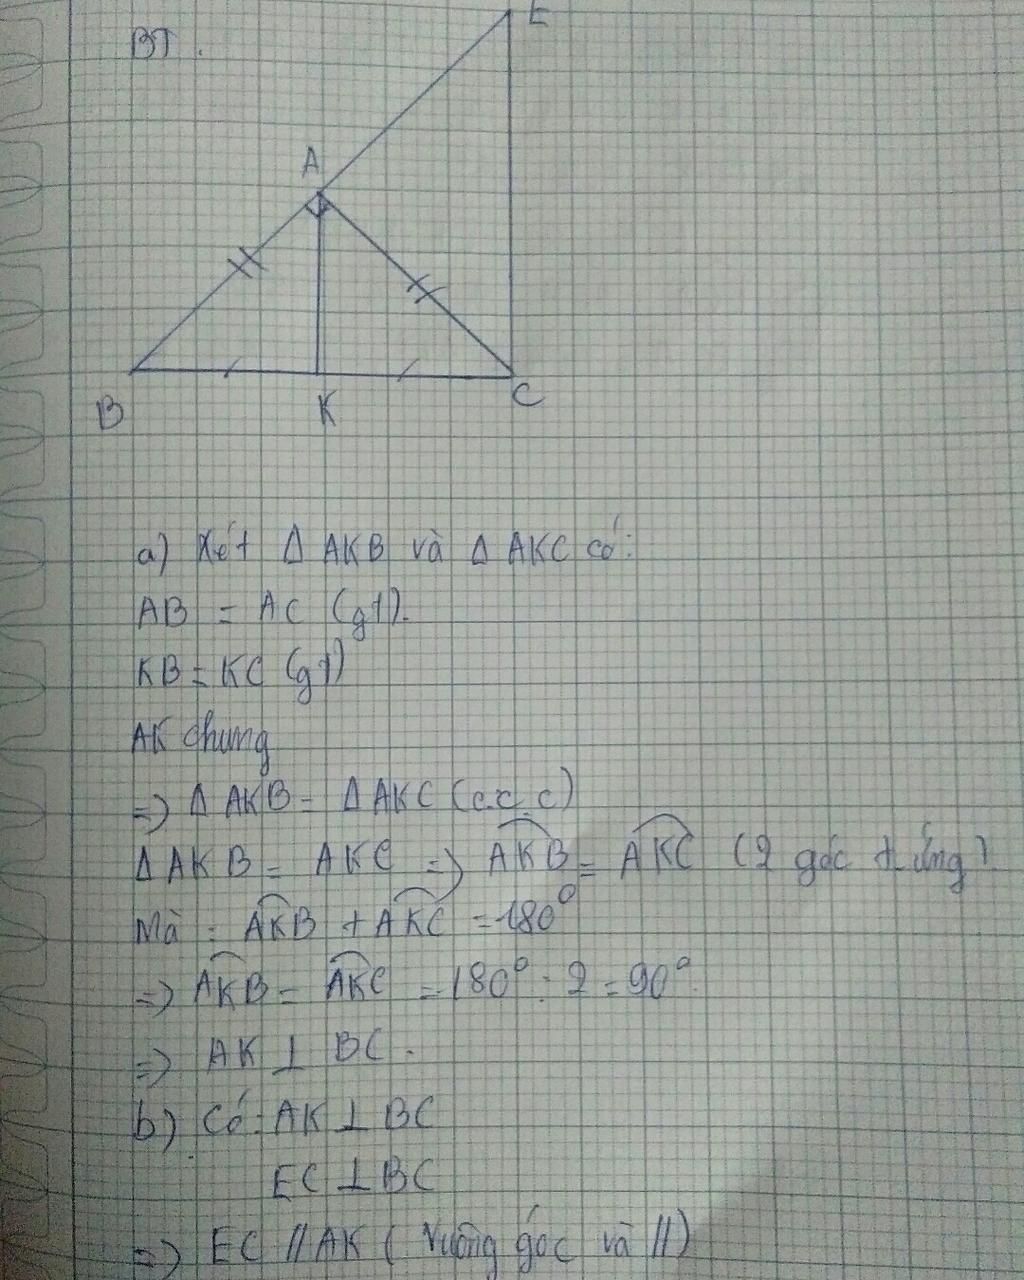 BT.
E
A
B K C
a) Xét Δ AKB và Δ AKC có:
AB = AC (gt).
KB = KC (gt)
AK chung
=> Δ AKB = Δ AKC (c.c.c)
Δ AKB = AKC => AKB = AKC (2 góc t. ứng)
Mà: AKB + AKC = 180°
=> AKB = AKC = 180° : 2 = 90°.
=> AK ⊥ BC.
b) Có: AK ⊥ BC
EC ⊥ BC
=> EC // AK ( Vuông góc và //)